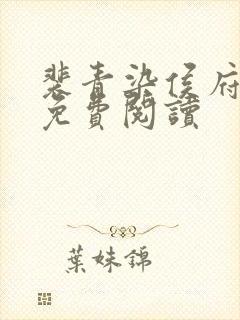 裴青染侯府
免費閱讀
葉妹錦